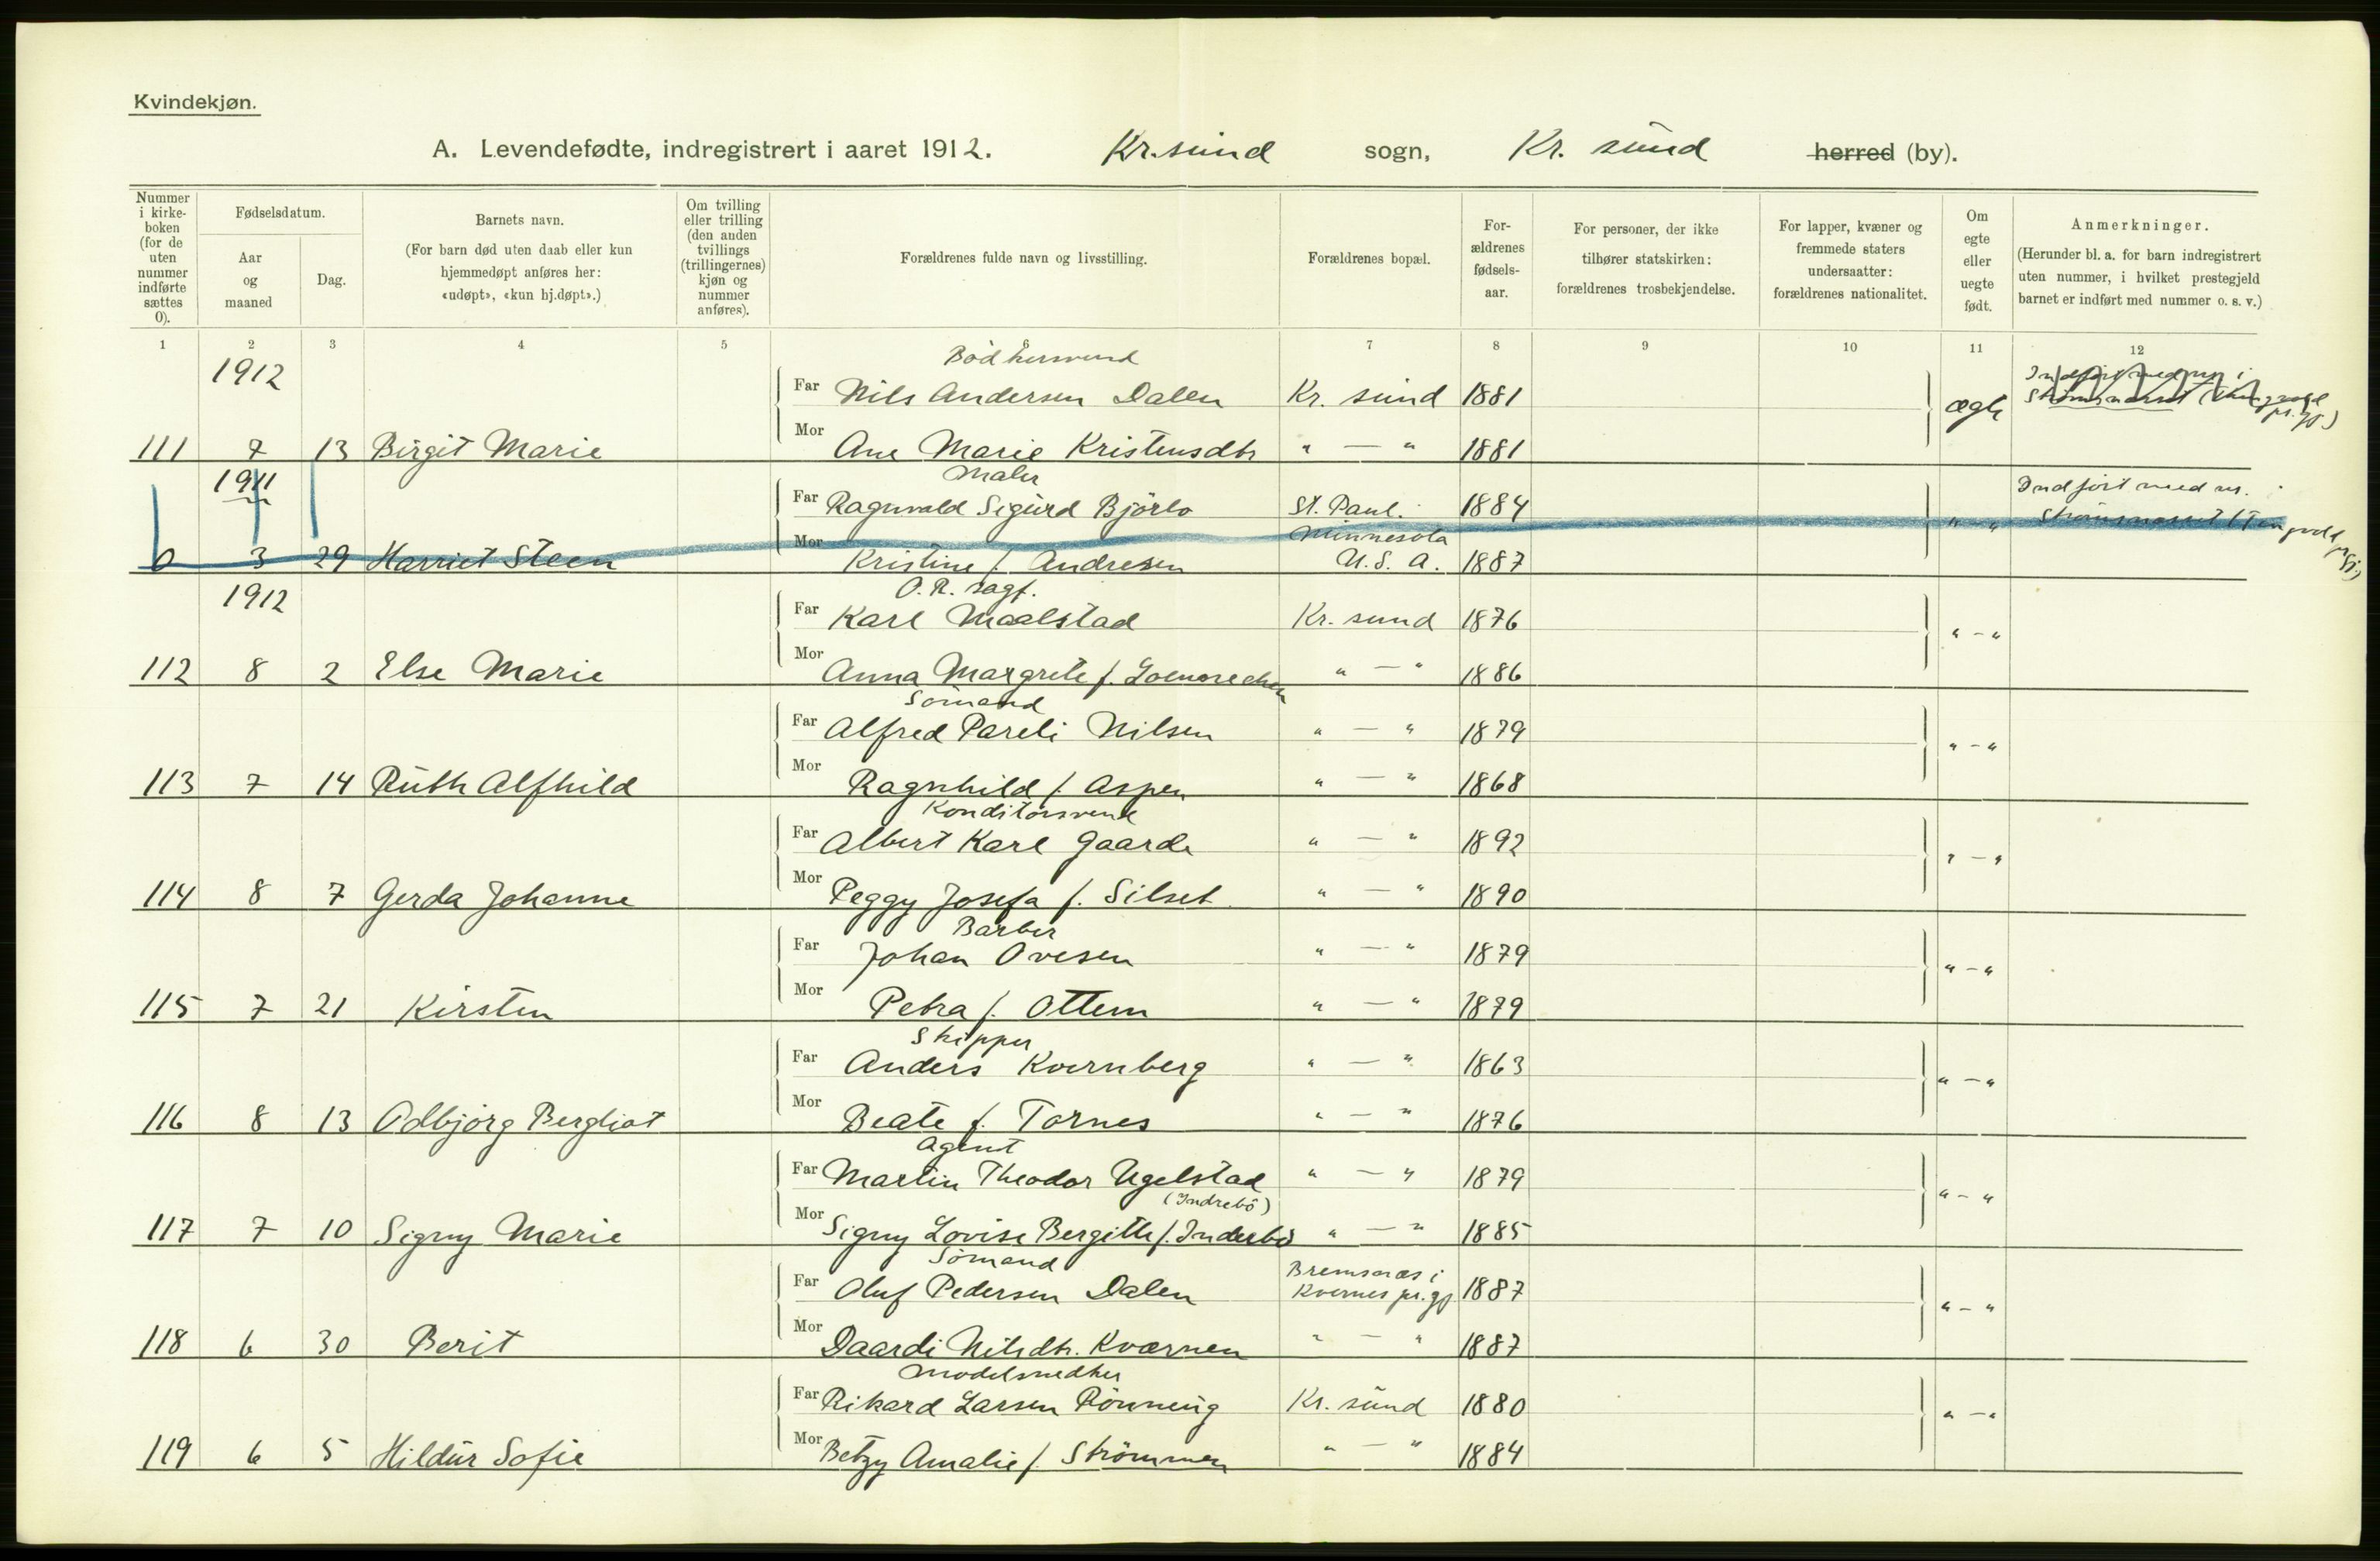 Kvindekjøn.
A. Levendefødte, indregistrert i aaret 1912. Kr.sund sogn, Kr. sund herred (by).
Nummer i kirke-boken (for de uten nummer indførte sættes 0).
Fødselsdatum.
Aar og maaned
Dag.
Barnets navn.
(For barn død uten daab eller kun hjemmedøpt anføres her: «udøpt», «kun hj.døpt».)
Om tvilling eller trilling (den anden tvillings (trillingernes) kjøn og nummer anføres).
Forældrenes fulde navn og livsstilling.
Forældrenes bopæl.
For-ældrenes fødsels-aar.
For personer, der ikke tilhører statskirken: forældrenes trosbekjendelse.
For lapper, kvæner og fremmede staters undersaatter: forældrenes nationalitet.
Om egte eller uegte født.
Anmerkninger.
(Herunder bl. a. for barn indregistrert uten nummer, i hvilket prestegjeld barnet er indført med nummer o. s. v.)
1 2 3 4 5 7 8 9 10 11 12
1912 Bödkersvend
Far Nils Andersen Dalen Kr. sund 1881 ægte
111 7 13 Birgit Marie Mor Ane Marie Kristensdtr " — " 1881
1911 Maler Indfört med nr. i
Far Ragnvald Sigurd Björlo St. Paul. 1884 " — " Strömsnæset (Tingvold pr.gj.)
Minnesota
0 3 29 Harriet Steen Mor Kristine f. Andresen U.S.A. 1887
1912
Far Karl Maalstad Kr. sund 1876 " — "
112 8 2 Else Marie Mor Anna Margrete f. 1886
Sömand
Far Alfred Pareli Nilsen " — " 1879 " — "
113 7 14 Ruth Alfhild Mor Ragnhild f. Aspen " — " 1868
Konditorsvend
Far Albert Karl Gaarde " — " 1892 " — "
114 8 7 Gerda Johanne Mor Peggy Josefa f. Silset " — " 1890
Barber
Far Johan Ovesen " — " 1879 " — "
115 7 21 Kirsten Mor Petra f. Ottem " — " 1879
Skipper
Far Anders Kvernberg " — " 1863 " — "
116 8 13 Odbjörg Bergliot Mor Beate f. Tornes " — " 1876
Agent
Far Martin Theodor Ugelstad " — " 1879 " — "
(Indrebö)
117 7 10 Signy Marie Mor Signy Lovise Bergitte f. Inderbö " — " 1885
Sömand Bremsnæs i
Far Oluf Pedersen Dalen Kvernes pr.gj. 1887 " — "
118 6 30 Berit Mor Daardi Nilsdtr. Kværnen " — " 1887
Modelsnedker
Far Rikard Larsen Rönning Kr. sund 1880 " — "
119 6 5 Hildur Sofie Mor Betzy Amalie f. Strömmen " — " 1884